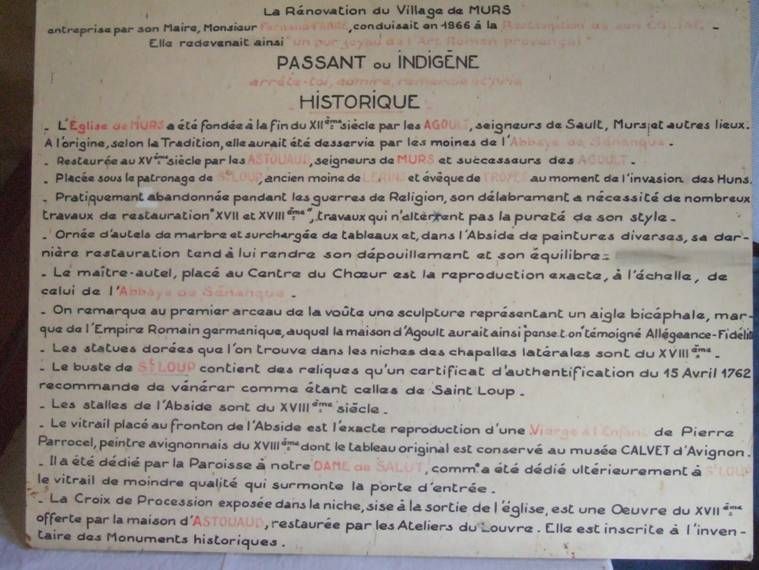 La Rénovation du Village de MURS
entreprise par son Maire, Monsieur Fernand FABRE, conduisait en 1966 à la Restauration de son EGLISE. -
Elle redevenait ainsi "un pur joyau de l'Art Roman provençal"
PASSANT ou INDIGÈNE
arrête-toi, admire, remercie et
HISTORIQUE
- L'Eglise de MURS a été fondée à la fin du XII ème siècle par les AGOULT, seigneurs de Sault, Murs, et autres lieux.
A l'origine, selon la Tradition, elle aurait été desservie par les moines de l'Abbaye de Sénanque.
- Restaurée au XV ème siècle par les ASTOUAUD, seigneurs de MURS et successeurs des AGOULT -
- Placée sous le patronage de St LOUP, ancien moine de LERINS et évêque de TROYES au moment de l'invasion des Huns.
- Pratiquement abandonnée pendant les guerres de Religion, son délabrement a nécessité de nombreux
travaux de restauration "XVII et XVIII ème", travaux qui n'altèrent pas la pureté de son style -
- Ornée d'autels de marbre et surchargée de tableaux et, dans l'Abside de peintures diverses, sa der-
nière restauration tend à lui rendre son dépouillement et son équilibre -
- Le maître-autel, placé au Centre du Chœur est la reproduction exacte, à l'échelle, de
celui de l'Abbaye de Sénanque -
- On remarque au premier arceau de la voûte une sculpture représentant un aigle bicéphale, mar-
que de l'Empire Romain germanique, auquel la maison d'Agoult aurait ainsi pense.t.on témoigné Allégeance-Fidélité
- Les statues dorées que l'on trouve dans les niches des chapelles latérales sont du XVIII ème -
- Le buste de St LOUP contient des reliques qu'un certificat d'authentification du 15 Avril 1762
recommande de vénérer comme étant celles de Saint Loup -
- Les stalles de l'Abside sont du XVIII ème siècle.
- Le vitrail placé au fronton de l'Abside est l'exacte reproduction d'une Vierge à l'Enfant de Pierre
Parrocel, peintre avignonnais du XVIII ème dont le tableau original est conservé au musée CALVET d'Avignon.
- Il a été dédié par la Paroisse à notre DAME de SALUT, comm. a été dédié ultérieurement à St LOUP
le vitrail de moindre qualité qui surmonte la porte d'entrée.
- La Croix de Procession exposée dans la niche, sise à la sortie de l'église, est une Oeuvre du XVII ème
offerte par la maison d'ASTOUAUD, restaurée par les Ateliers du Louvre. Elle est inscrite à l'inven-
taire des Monuments historiques.